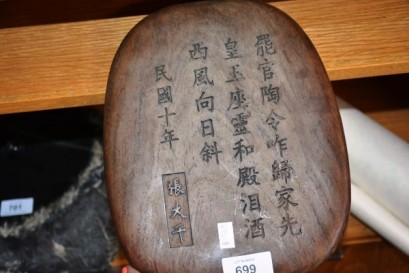 罷官陶令咋歸家先
皇玉座靈和殿泪酒
西風向日斜
民國十年
張大千
699
701